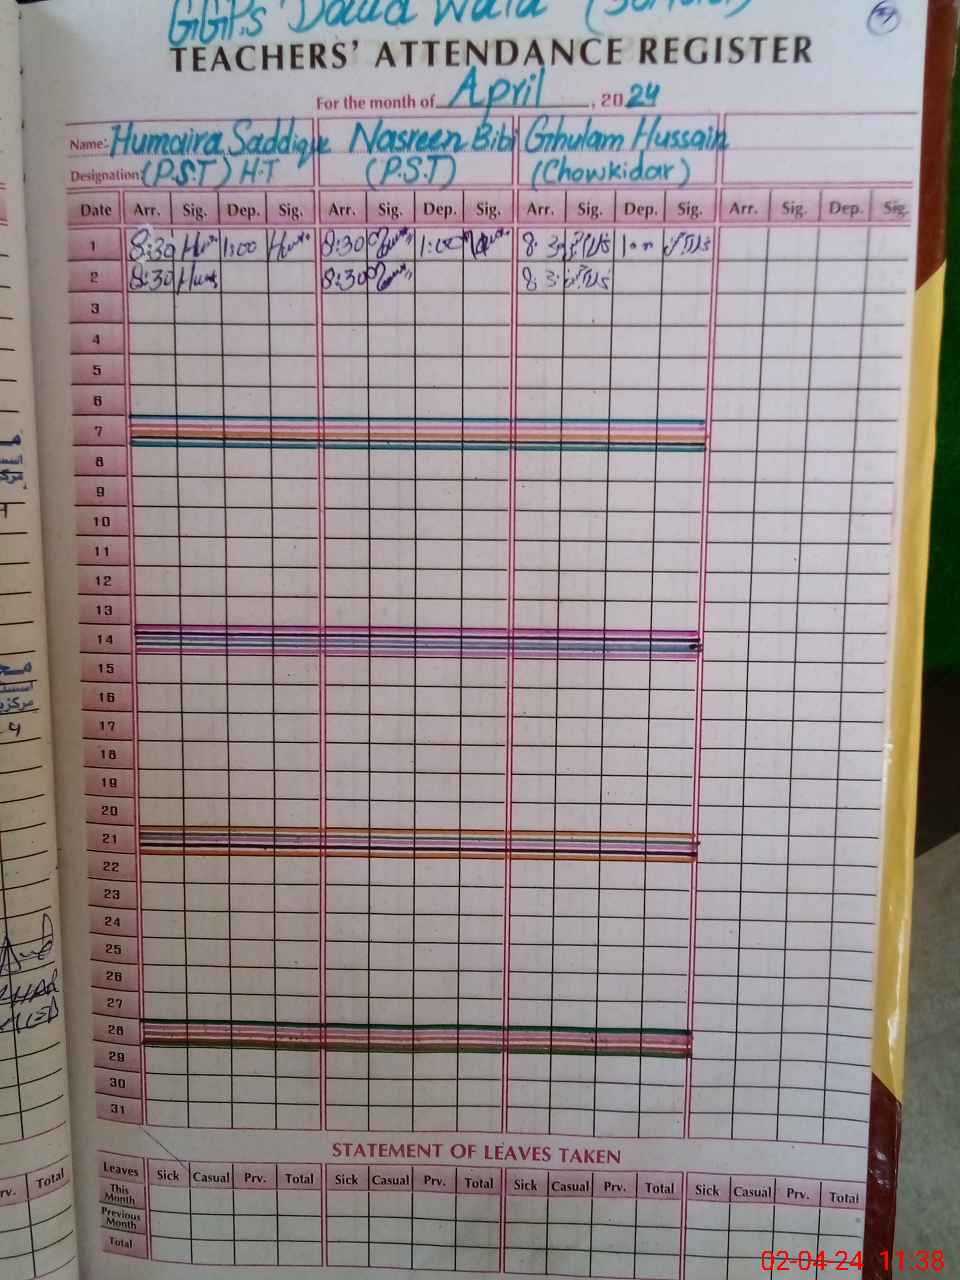 GGPS Daud Wala
TEACHERS' ATTENDANCE REGISTER
For the month of April, 2024
Name:- Humaira Saddique Nasreen Bibi Ghulam Hussain
Designation: (P.S.T) H.T (P.S.T) (Chowkidar)
Date Arr. Sig. Dep. Sig. Arr. Sig. Dep. Sig. Arr. Sig. Dep. Sig. Arr. Sig. Dep. Sig.
1 8:30 1:00 8:30 1:00 8:30
2 8:30 8:30 8:3
3
4
5
6
7
8
9
10
11
12
13
14
15
16
17
18
19
20
21
22
23
24
25
26
27
28
29
30
31
STATEMENT OF LEAVES TAKEN
Leaves Sick Casual Prv. Total Sick Casual Prv. Total Sick Casual Prv. Total Sick Casual Prv. Total
This Month
Previous Month
Total
rv. Total
02-04-24 11:38